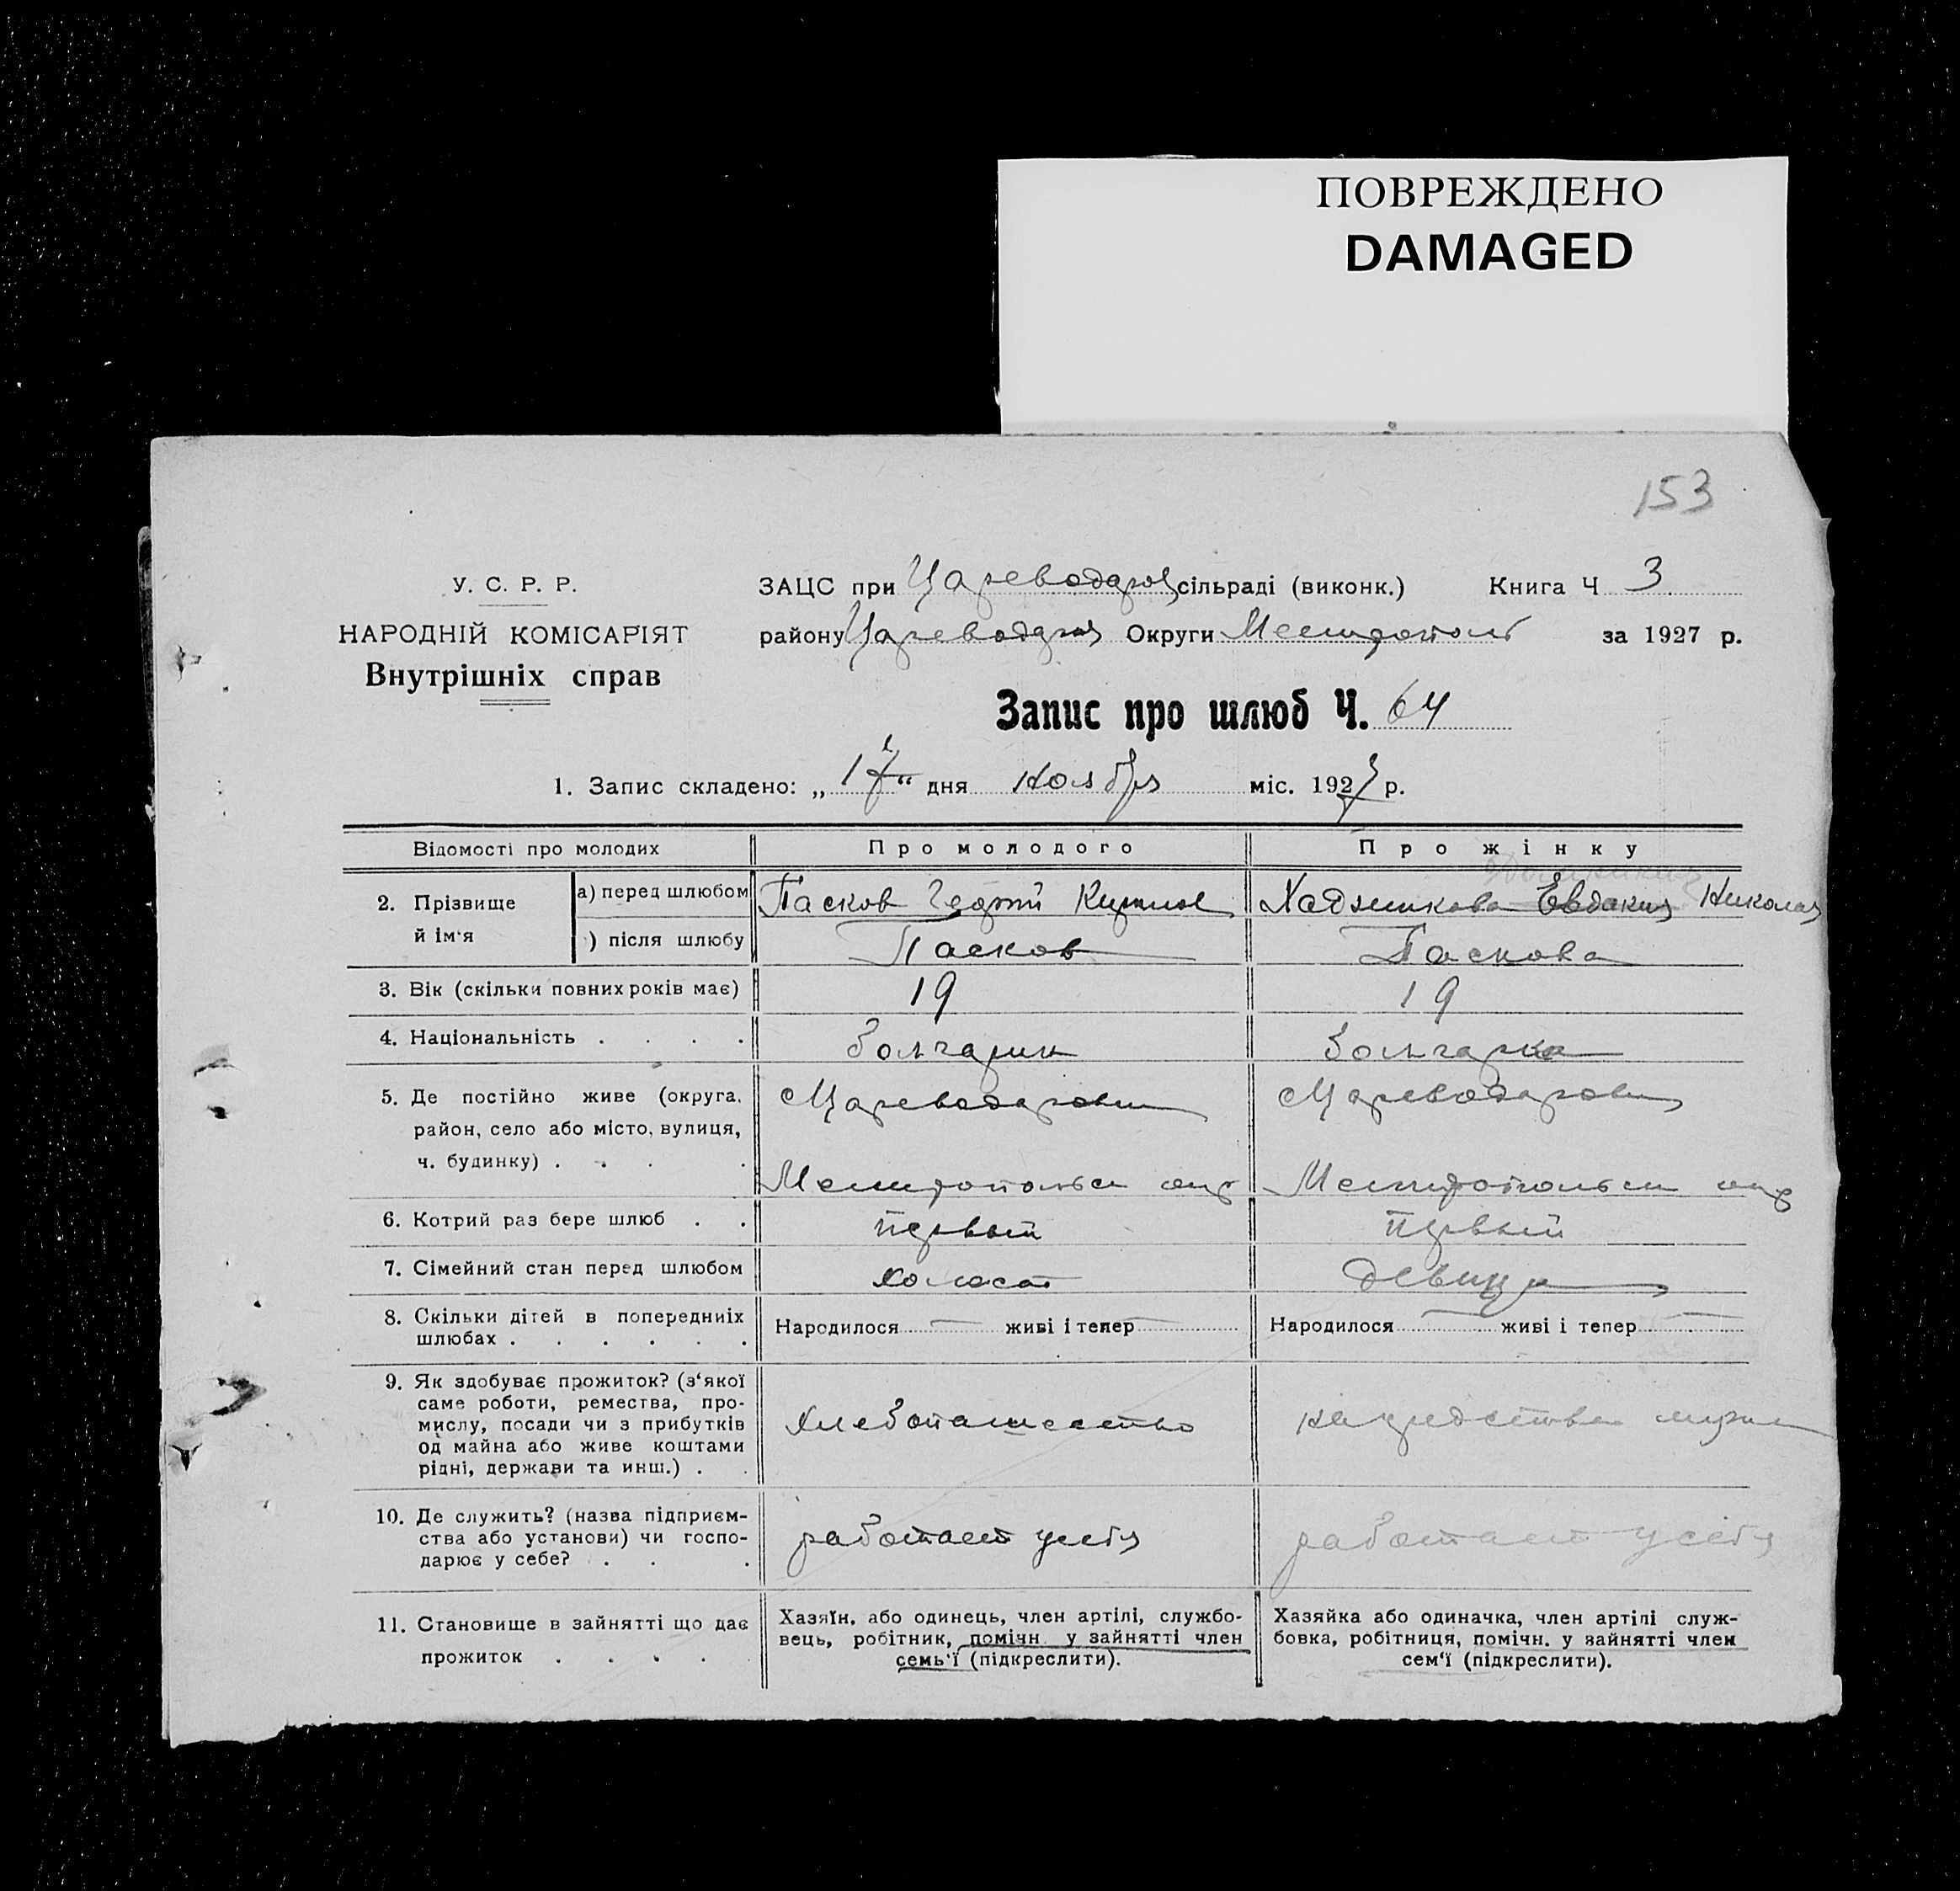 ПОВРЕЖДЕНО
DAMAGED
153
У. С. Р. Р.
НАРОДНІЙ КОМІСАРІЯТ
Внутрішніх справ
ЗАЦС при Цареводаров сільраді (виконк.) Книга Ч 3
району Цареводаров Округи Мелитополь за 1927 р.
Запис про шлюб Ч. 64
1. Запис складено: „17“ дня ноября міс. 1927 р.
Відомості про молодих Про молодого Про жінку
2. Прізвище й ім‘я а) перед шлюбом Пасков Георгий Кирилов Хаджинова Евдокия Николая
) після шлюбу Пасков Паскова
3. Вік (скільки повних років має) 19 19
4. Національність . . . . болгарин болгарка
5. Де постійно живе (округа, Цареводаровка Цареводаровка
район, село або місто, вулиця,
ч. будинку) . . . . Мелитопольск окр Мелитопольск окр
6. Котрий раз бере шлюб . . первый первый
7. Сімейний стан перед шлюбом холост девица
8. Скільки дітей в попередніх Народилося — живі і тепер Народилося — живі і тепер —
шлюбах . . . . . .
9. Як здобуває прожиток? (з‘якої
саме роботи, ремества, про-
мислу, посади чи з прибутків хлебопашество на средства мужа
од майна або живе коштами
рідні, держави та инш.) . .
10. Де служить? (назва підприєм-
ства або установи) чи госпо- работает у себя работает у себя
дарює у себе? . . .
11. Становище в зайнятті що дає Хазяїн, або одинець, член артілі, службо- Хазяйка або одиначка, член артілі служ-
прожиток . . . . . вець, робітник, помічн. у зайнятті член бовка, робітниця, помічн. у зайнятті член
семь‘ї (підкреслити). сем‘ї (підкреслити).